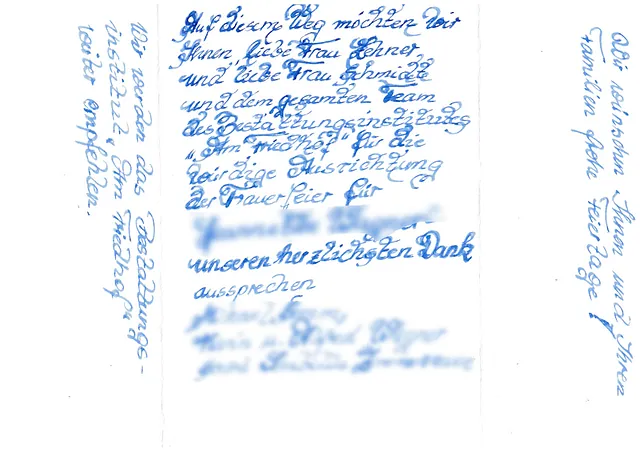 Auf diesem Weg möchten wir
Ihnen, liebe Frau Lehner,
und liebe Frau Schmidt
und dem gesamten Team
des Bestattungsinstitutes
"Am Friedhof" für die
würdige Ausrichtung
der Trauerfeier für
unseren herzlichsten Dank
aussprechen
Wir werden das Bestattungs-
institut "Am Friedhof"
weiter empfehlen.
Wir wünschen Ihnen und Ihren
Familien frohe Feiertage!